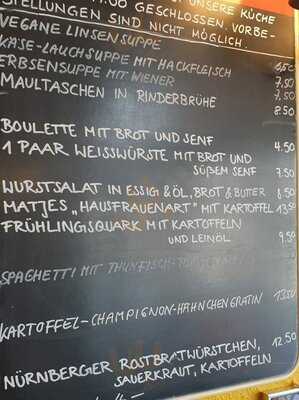 :00 GESCHLOSSEN. VORBE-
STELLUNGEN SIND NICHT MÖGLICH.
VEGANE LINSENSUPPE
KÄSE-LAUCHSUPPE MIT HACKFLEISCH 6,50
ERBSENSUPPE MIT WIENER 7,50
MAULTASCHEN IN RINDERBRÜHE 7.50
8.50
BOULETTE MIT BROT UND SENF 4.50
1 PAAR WEISSWÜRSTE MIT BROT UND
SÜßEM SENF 7.50
WURSTSALAT IN ESSIG & ÖL, BROT & BUTTER 8.50
MATJES „HAUSFRAUENART" MIT KARTOFFEL 13.50
FRÜHLINGSQUARK MIT KARTOFFELN
UND LEINÖL 9.50
SPAGHETTI MIT THUNFISCH-
KARTOFFEL-CHAMPIGNON-HÄHNCHENGRATIN 13.50
NÜRNBERGER ROSTBRATWÜRSTCHEN, 12.50
SAUERKRAUT, KARTOFFELN